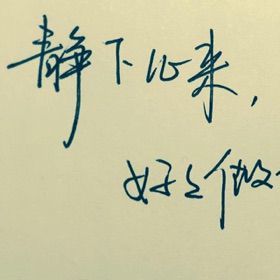 静下心来,
好好做